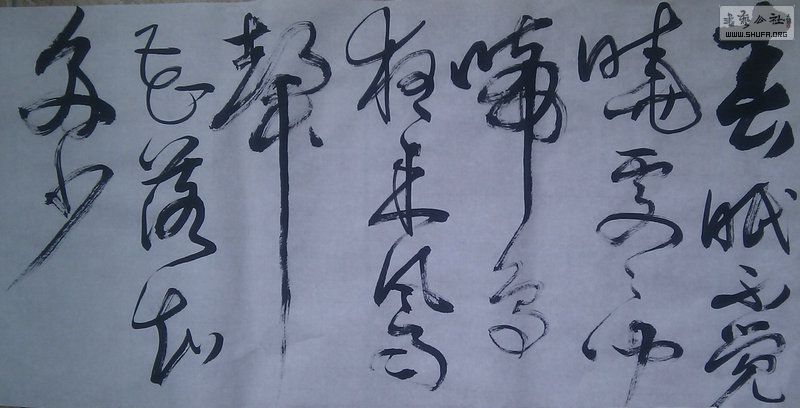 春眠不觉
晓處々闻
啼鸟
夜来风雨
聲
花落知
多少
書藝公社
WWW.SHUFA.ORG